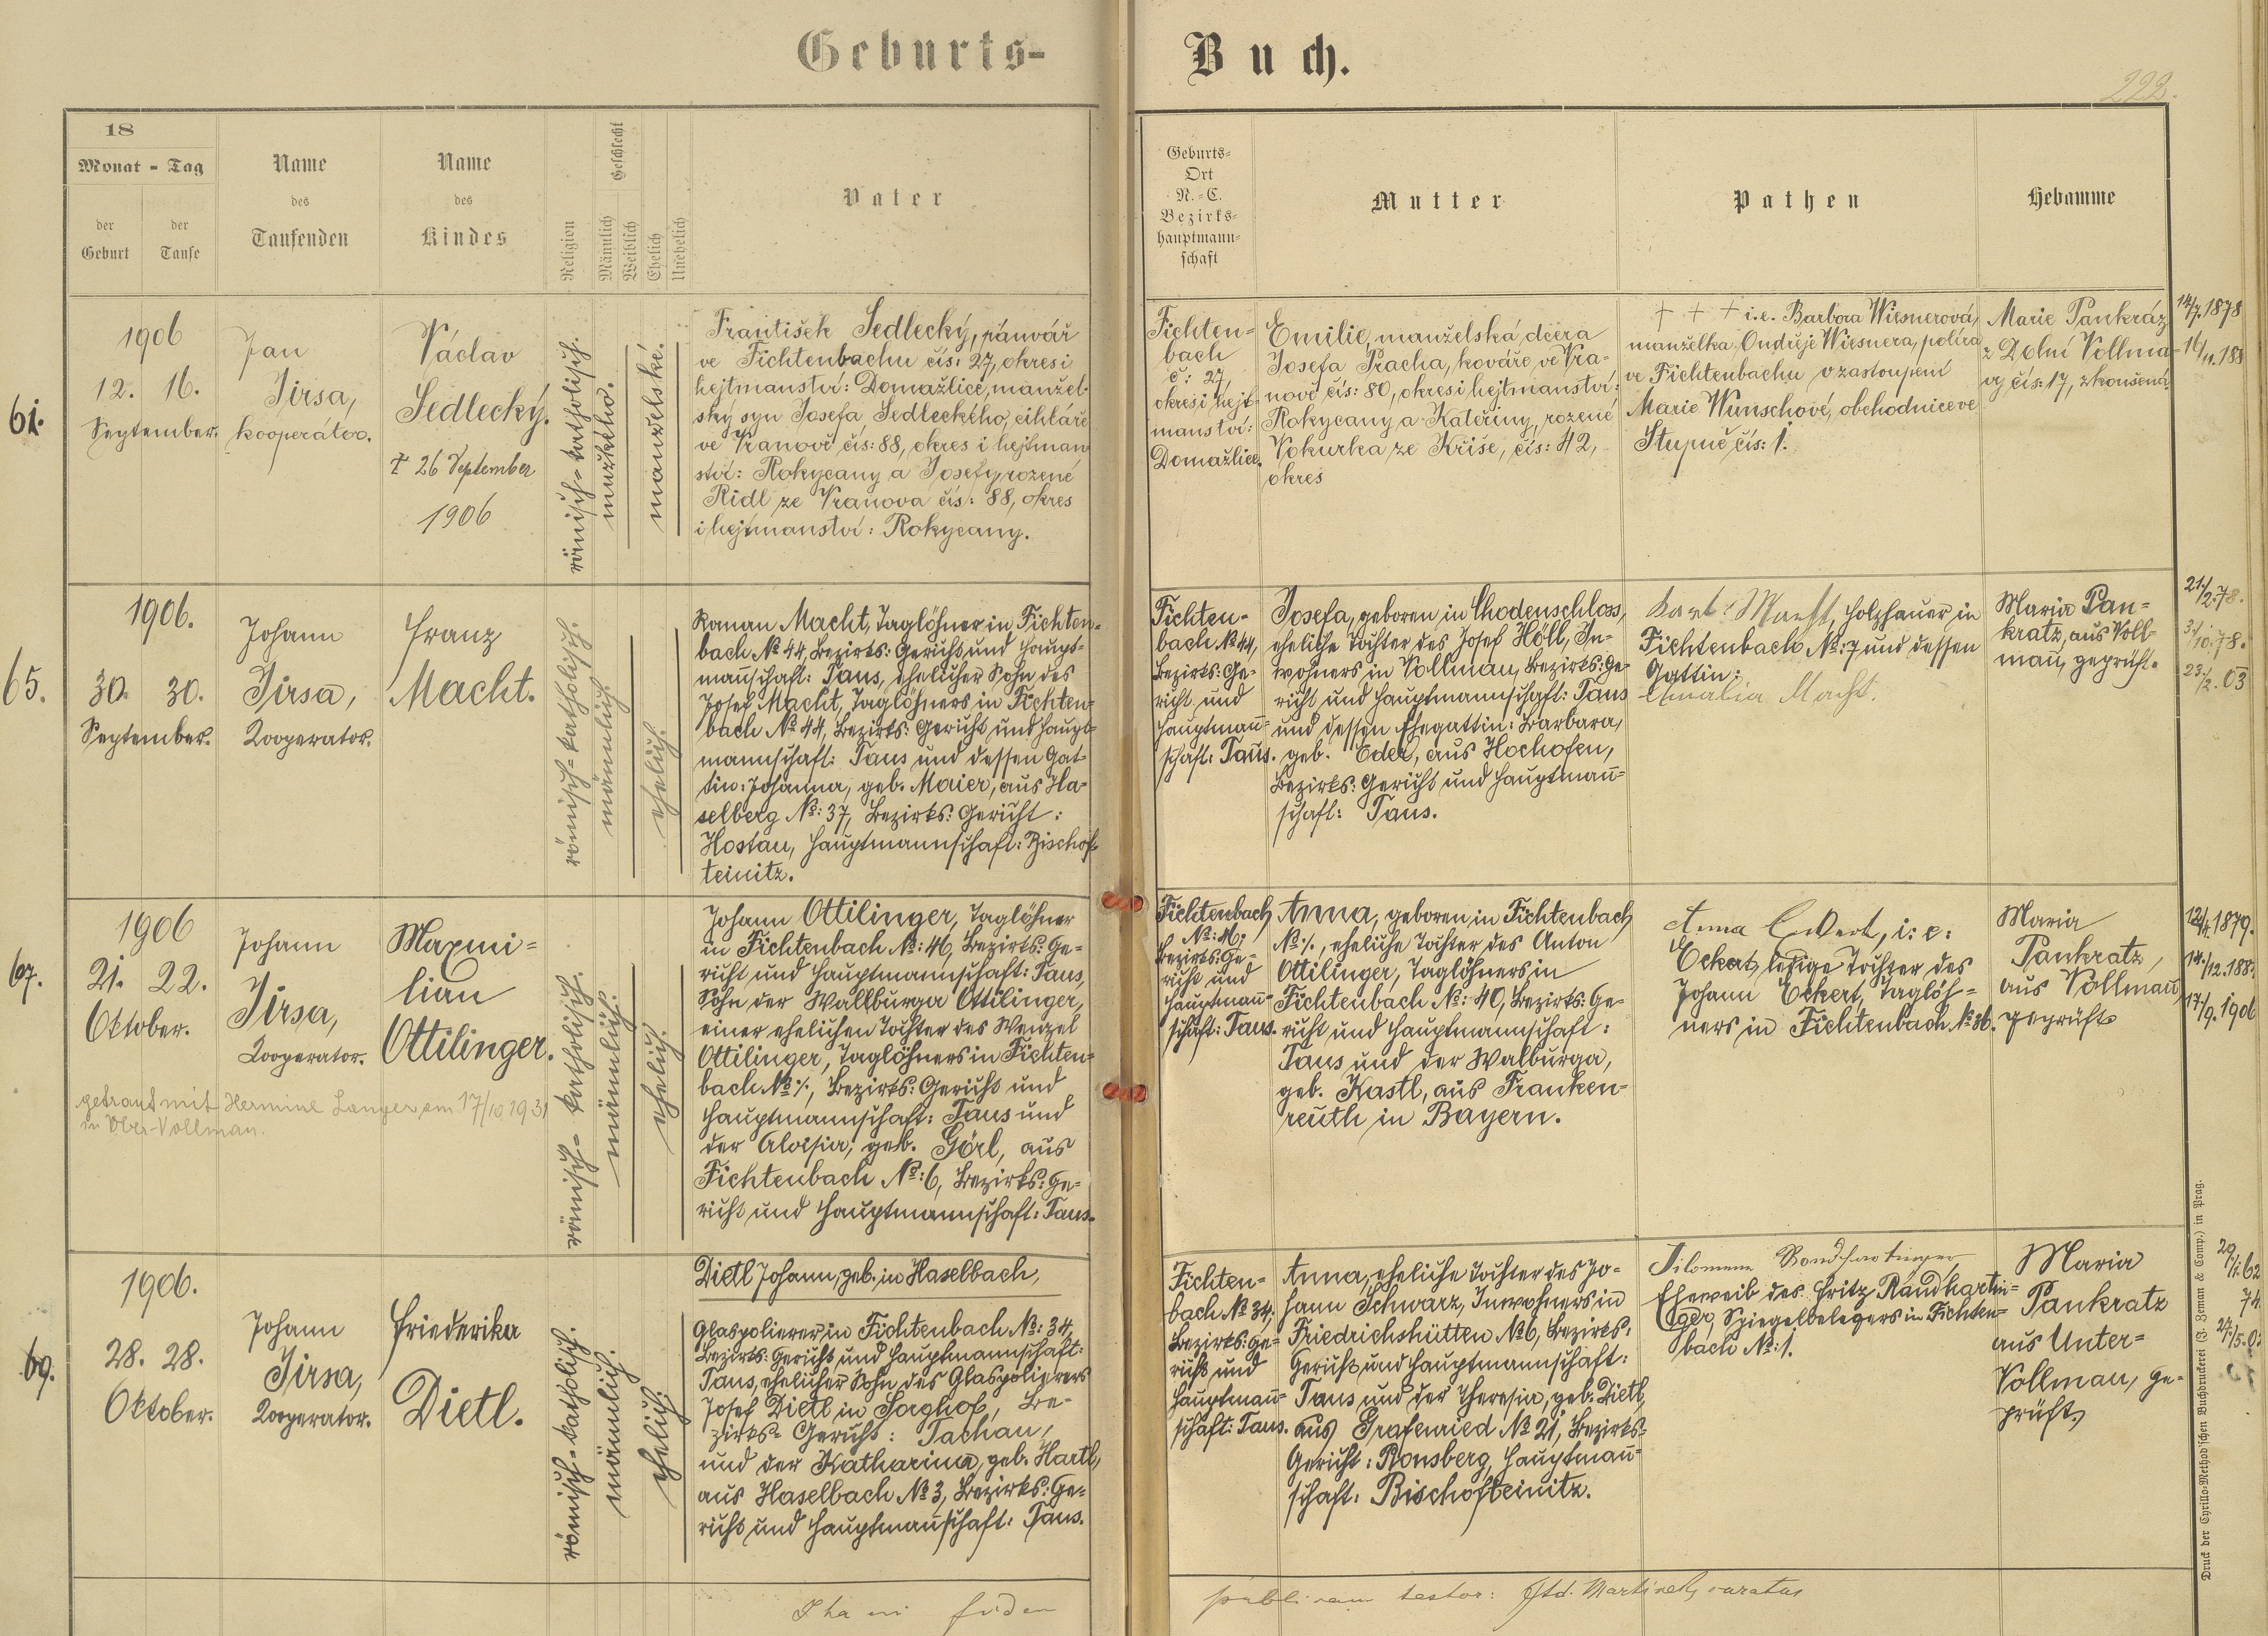 Geburts-Buch.
222.
18
Monat - Tag
der Geburt
der Taufe
Name des Taufenden
Name des Kindes
Religion
Geschlecht
Männlich
Weiblich
Ehelich
Unehelich
Vater
Geburts-
Ort
N.-C.
Bezirks-
hauptmann-
schaft
Mutter
Pathen
Hebamme
61.
1906
12. 16.
September.
Jan
Jirsa,
kooperátor.
Václav
Sedlecký.
† 26 September
1906
römisch-katholisch.
mužského.
manželské.
František Sedlecký, pánvář
ve Fichtenbachu čís: 27, okres i
hejtmanství: Domažlice, manžel-
ský syn Josefa Sedleckého, cihláře
ve Vranově čís: 88, okres i hejtman
ství: Rokycany a Josefy, rozené
Ridl ze Vranova čís: 88, okres
i hejtmanství: Rokycany.
Fichten-
bach
č: 27,
okres i hejt-
manství:
Domažlice.
Emilie, manželská dcera
Josefa Pracha, kováře ve Vra-
nově čís: 80, okres i hejtmanství:
Rokycany a Kateřiny, rozené
Vokurka ze Kříše, čís: 42,
okres
† † † i.e. Barbora Wiesnerová,
manželka Ondřeje Wiesnera, políra
ve Fichtenbachu v zastoupení
Marie Wunschové, obchodnice ve
Stupně čís: 1.
Marie Pankráz
z Dolní Vollma-
vy čís: 17, zkoušená
14/7. 1878
65.
1906.
30. 30.
September.
Johann
Jirsa,
Kooperator.
Franz
Macht.
römisch-katholisch.
männlich.
ehelich.
Roman Macht, Taglöhner in Fichten-
bach № 44, Bezirks: Gericht und Haupt-
mannschaft: Taus, ehelicher Sohn des
Josef Macht, Taglöhners in Fichten-
bach № 44, Bezirks: Gericht und Haupt-
mannschaft: Taus und dessen Gat-
tin: Johanna, geb. Maier, aus Ha-
selberg №: 37, Bezirks: Gericht:
Hostau, Hauptmannschaft: Bischof-
teinitz.
Fichten-
bach № 44,
Bezirks: Ge-
richt und
Hauptman̄-
schaft: Taus.
Josefa, geboren in Chodenschloss,
eheliche Tochter des Josef Höll, In-
wohners in Vollmau, Bezirks: Ge-
richt und Hauptmannschaft: Taus
und dessen Ehegattin: Barbara,
geb. Eder, aus Hochofen,
Bezirks: Gericht und Hauptman̄-
schaft: Taus.
Macht, Holzhauer in
Fichtenbach №: 7 und dessen
Gattin:
Amalia Macht.
Maria Pan-
kratz, aus Voll-
mau, geprüft.
21/2.78.
3/10.78.
23/2.03
67.
1906
21. 22.
Oktober.
Johann
Jirsa,
Kooperator.
Maxmi-
lian
Ottilinger.
getraut mit Hermine Langer am 17/10 1931
in Ober-Vollmau.
römisch-katholisch.
männlich.
ehelich.
Johann Ottilinger, Taglöhner
in Fichtenbach №: 46, Bezirks: Ge-
richt und Hauptmannschaft: Taus,
Sohn der Wallburga Ottilinger,
einer ehelichen Tochter des Wenzel
Ottilinger, Taglöhners in Fichten-
bach № ⁒, Bezirks: Gericht und
Hauptmannschaft: Taus und
der Aloisia, geb. Görl, aus
Fichtenbach №: 6, Bezirks: Ge-
richt und Hauptmannschaft: Taus.
Fichtenbach
№: 46.
Bezirks: Ge-
richt und
Hauptman̄-
schaft: Taus.
Anna, geboren in Fichtenbach
№: ⁒, eheliche Tochter des Anton
Ottilinger, Taglöhners in
Fichtenbach №: 40, Bezirks: Ge-
richt und Hauptmannschaft:
Taus und der Walburga,
geb. Kastl, aus Franken-
reuth in Bayern.
Anna Eckert, i: e:
Eckert, ledige Tochter des
Johann Eckert, Taglöh-
ners in Fichtenbach № 36.
Maria
Pankratz,
aus Vollmau,
geprüft
12/4. 1879.
17/9. 1906
69.
1906.
28. 28.
Oktober.
Johann
Jirsa,
Kooperator.
Friederika
Dietl.
römisch-katholisch.
männlich.
ehelich.
Dietl Johann, geb. in Haselbach,
Glaspolierer in Fichtenbach №: 34,
Bezirks: Gericht und Hauptmannschaft:
Taus, ehelicher Sohn des Glaspolierers
Josef Dietl in Sorghof, Be-
zirks- Gericht: Tachau,
und der Katharina, geb. Hartl,
aus Haselbach № 3, Bezirks: Ge-
richt und Hauptman̄schaft: Taus.
Fichten-
bach № 34,
Bezirks: Ge-
richt und
Hauptman̄-
schaft: Taus.
Anna, eheliche Tochter des Jo-
hann Schwarz, Inwohners in
Friedrichshütten № 6, Bezirks:
Gericht und Hauptmannschaft:
Taus und der Theresia, geb. Dietl,
aus Grafenried № 21, Bezirks-
Gericht: Ronsberg, Hauptman̄-
schaft: Bischofteinitz.
Filomena Randhartinger
Eheweib des Fritz Randhartin-
ger, Spiegelbelegers in Fichten-
bach №: 1.
Maria
Pankratz
aus Unter-
Vollmau, ge-
prüft.
fidem publicam testor: Martinek, curatus
Druck der Cyrillo-Method'schen Buchdruckerei (G. Zeman & Comp.) in Prag.